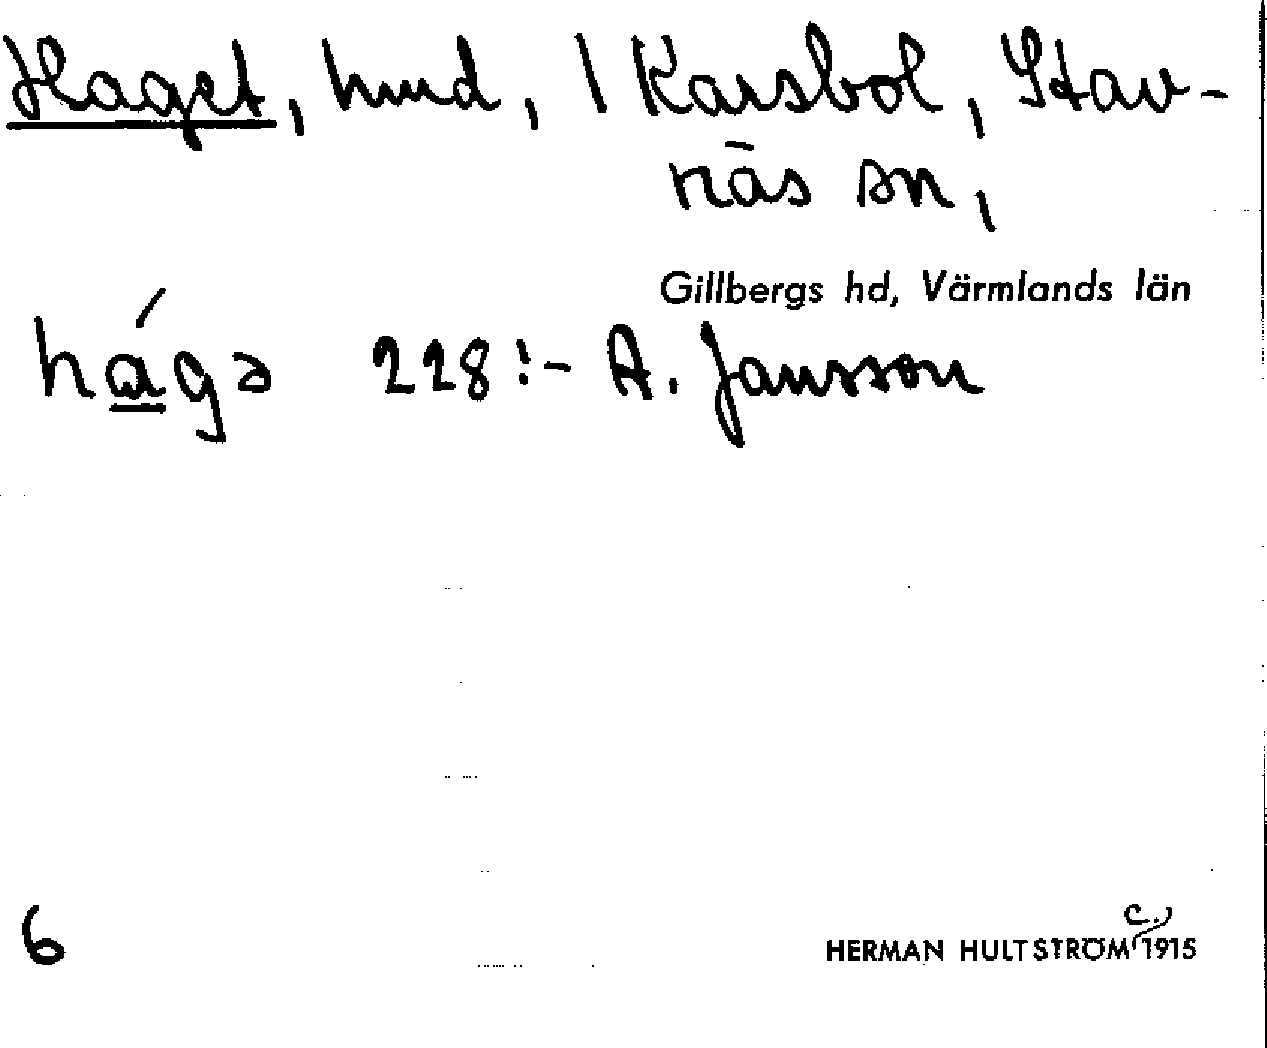 Haget, hmd, 1 Karsbol, Stav-
näs sn,
Gillbergs hd, Värmlands län
há̱gə 228:- A. Jansson
6
c.
HERMAN HULTSTRÖM 1915